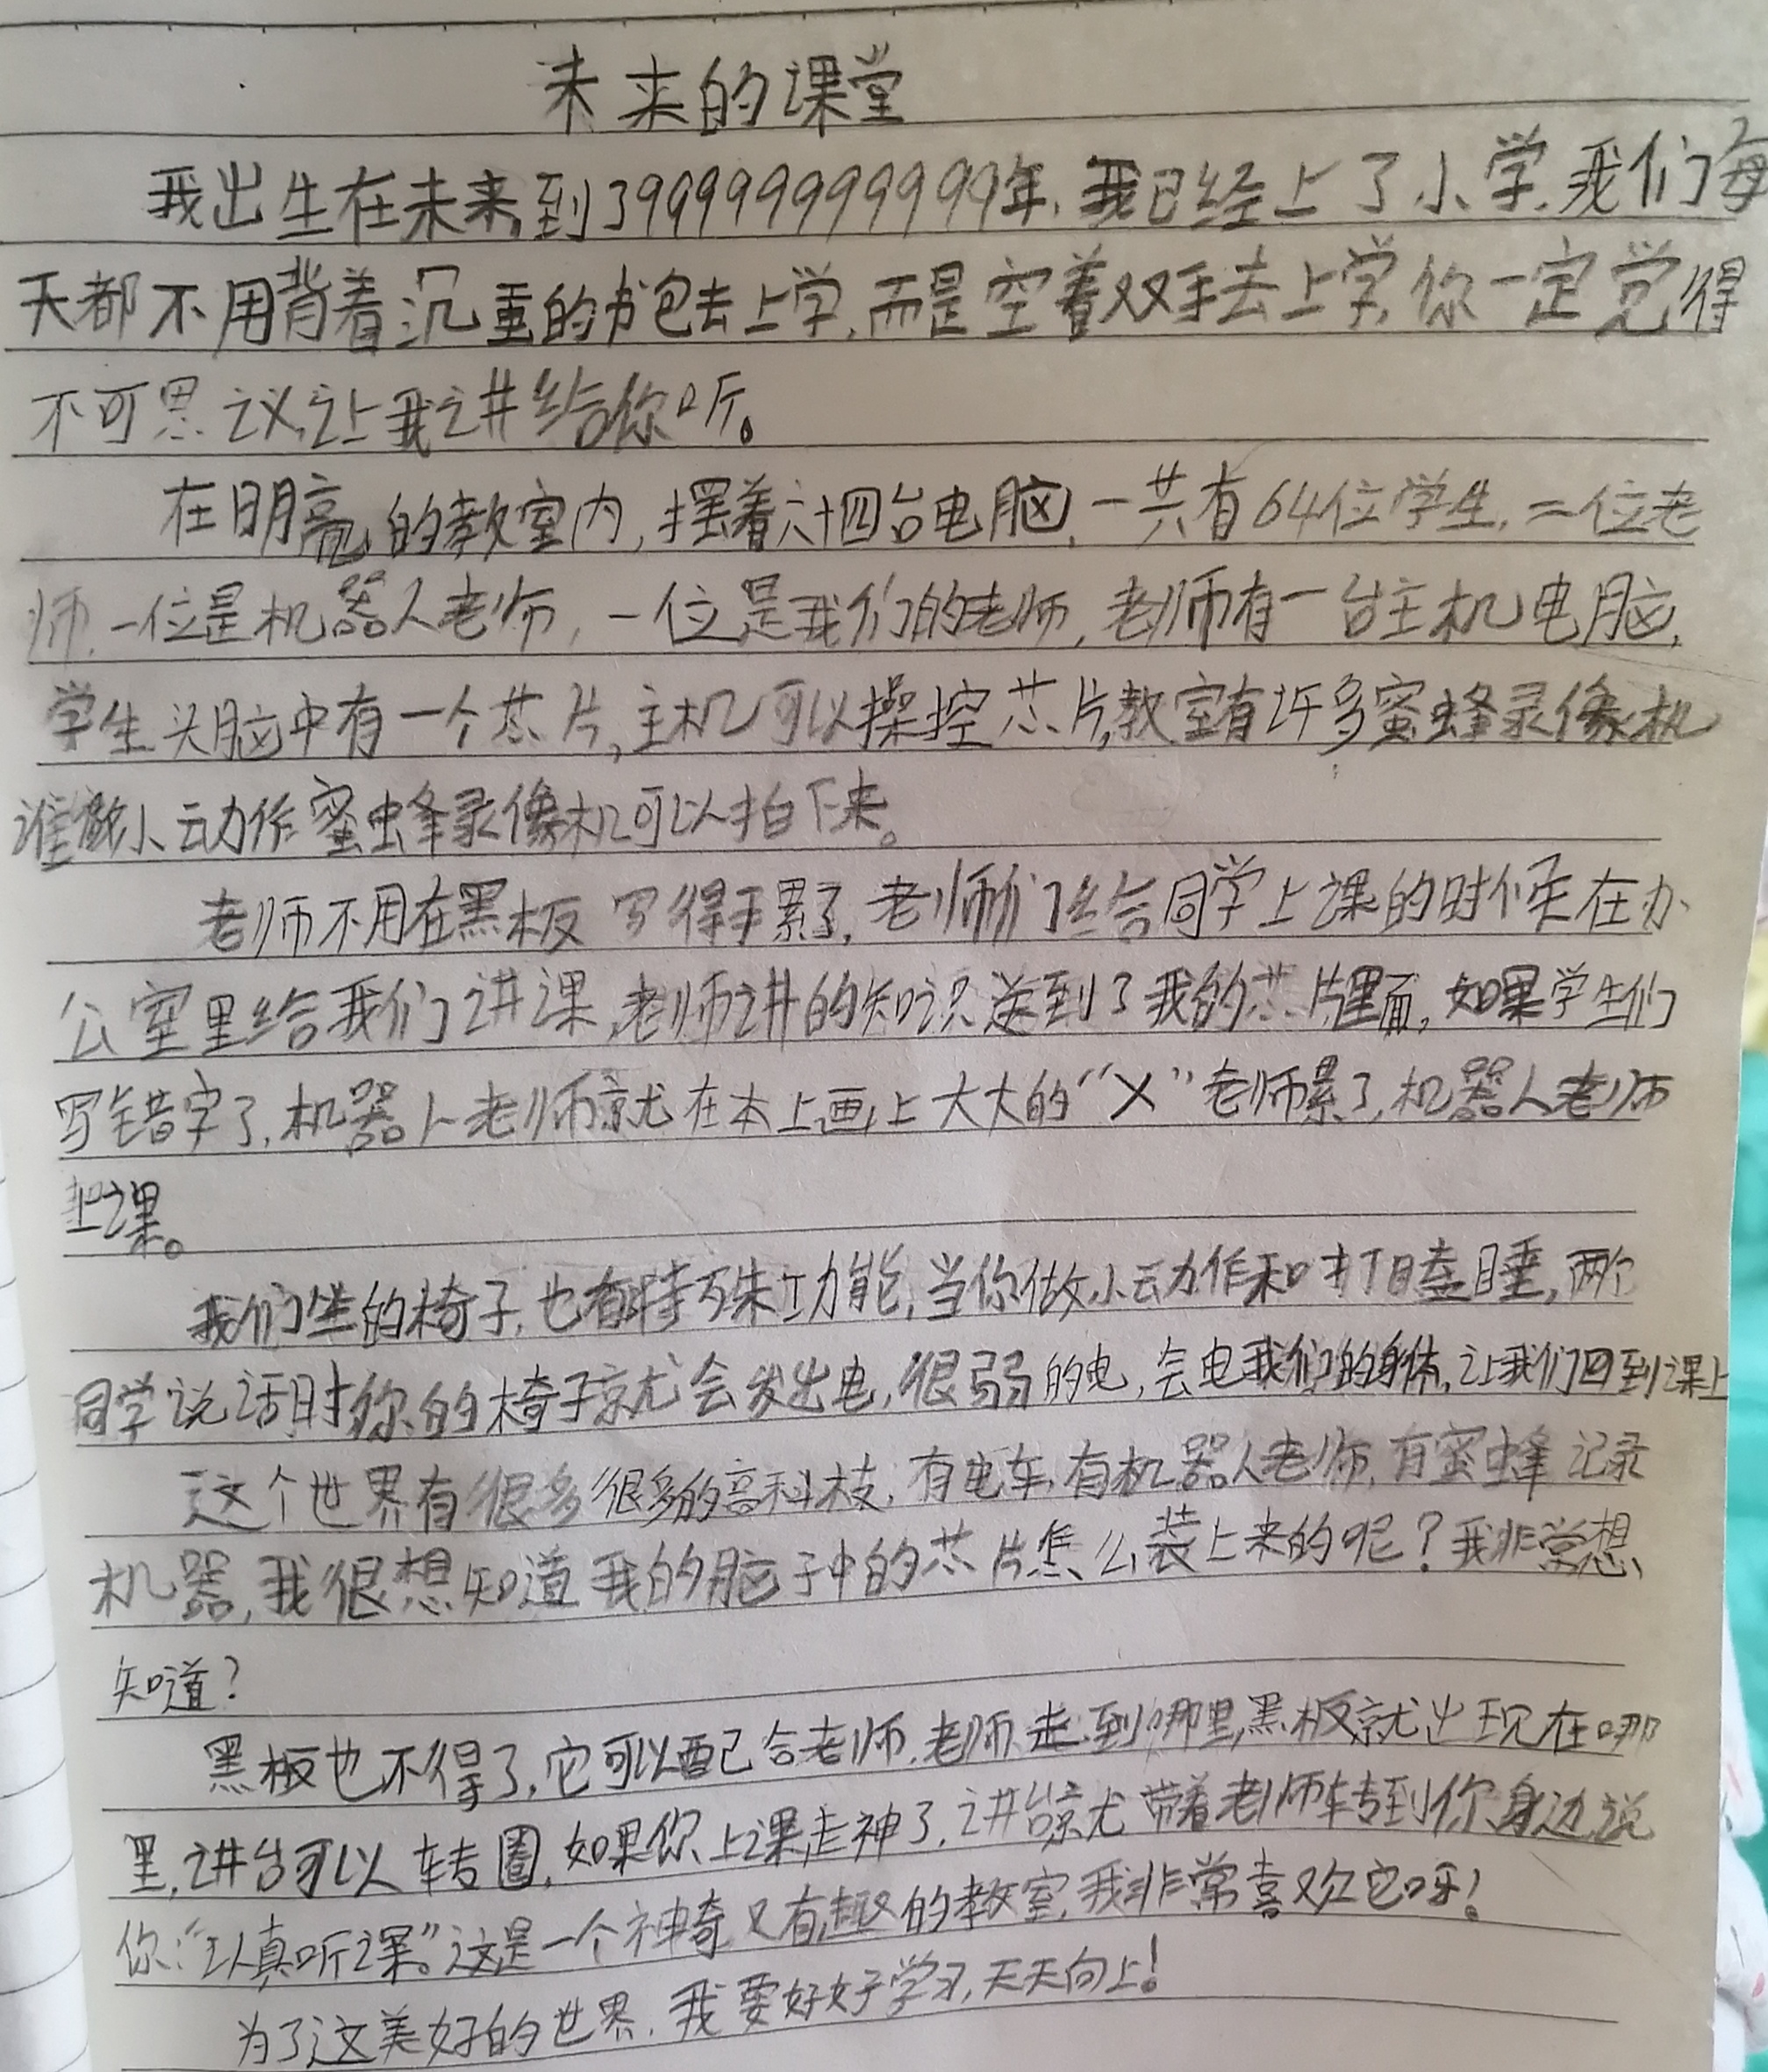 未来的课堂
我出生在未来,到3999999999999年,我已经上了小学,我们每
天都不用背着沉重的书包去上学,而是空着双手去上学,你一定觉得
不可思议,让我讲给你听。
在明亮的教室内,摆着六十四台电脑,一共有64位学生,二位老
师,一位是机器人老师,一位是我们的老师,老师有一台主机电脑,
学生头脑中有一个芯片,主机可以操控芯片,教室有许多蜜蜂录像机
谁做小动作蜜蜂录像机可以拍下来。
老师不用在黑板写得手累了,老师们给同学上课的时候在办
公室里给我们讲课,老师讲的知识送到了我的芯片里面,如果学生们
写错字了,机器人老师就在本上画上大大的“X”老师累了,机器人老师
上课。
我们坐的椅子,也有特殊功能,当你做小动作和打瞌睡,两个
同学说话时你的椅子就会发出电,很弱的电,会电我们的身体,让我们回到课上
这个世界有很多很多的高科枝,有电车,有机器人老师,有蜜蜂记录
机器,我很想知道我的脑子中的芯片怎么装上来的呢?我非常想
知道?
黑板也不得了,它可以配合老师,老师走到哪里,黑板就出现在哪
里,讲台可以转圈,如果你上课走神了,讲台就带着老师转到你身边说
你:“认真听课。”这是一个神奇又有趣的教室,我非常喜欢它呀!
为了这美好的世界,我要好好学习,天天向上!